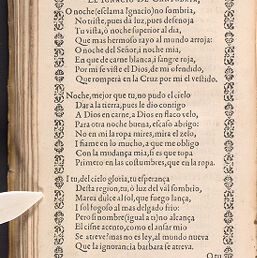 EL IGNACIO DE CANTABRIA,
O noche (esclama Ignacio) no sombria,
No triste, pues da luz, pues desenoja
Tu vista, ò noche superior al dia,
Que mas hermoso rayo al mundo arroja:
O noche del Señor, i noche mia,
En que de carne blanca, i sangre roja,
Por mi se viste el Dios, de mi ofendido,
Que romperà en la Cruz por mi el vestido.
Noche, mejor que tu, no pudo el cielo
Dar a la tierra, pues le dio contigo
A Dios en carne, a Dios en flaco velo,
Para otra noche buena, escaso abrigo:
No en mi la ropa mires, mira el zelo,
I fiame en lo mucho, a que me obligo
Con la mudança mia, si es que topa
Primero en las costumbres, que en la ropa.
I tu, del cielo gloria, tu esperança
Desta region, tu, ò luz del val sombrio,
Marea dulce al sol, que fuego lança,
I sol fogoso al mas delgado frio:
Pero si nombre (igual a ti) no alcança
El cisne atento, como el ansar mio
Se atreve? mas no es ley, al mundo nueva
Que la ignorancia barbara se atreva.
O tu